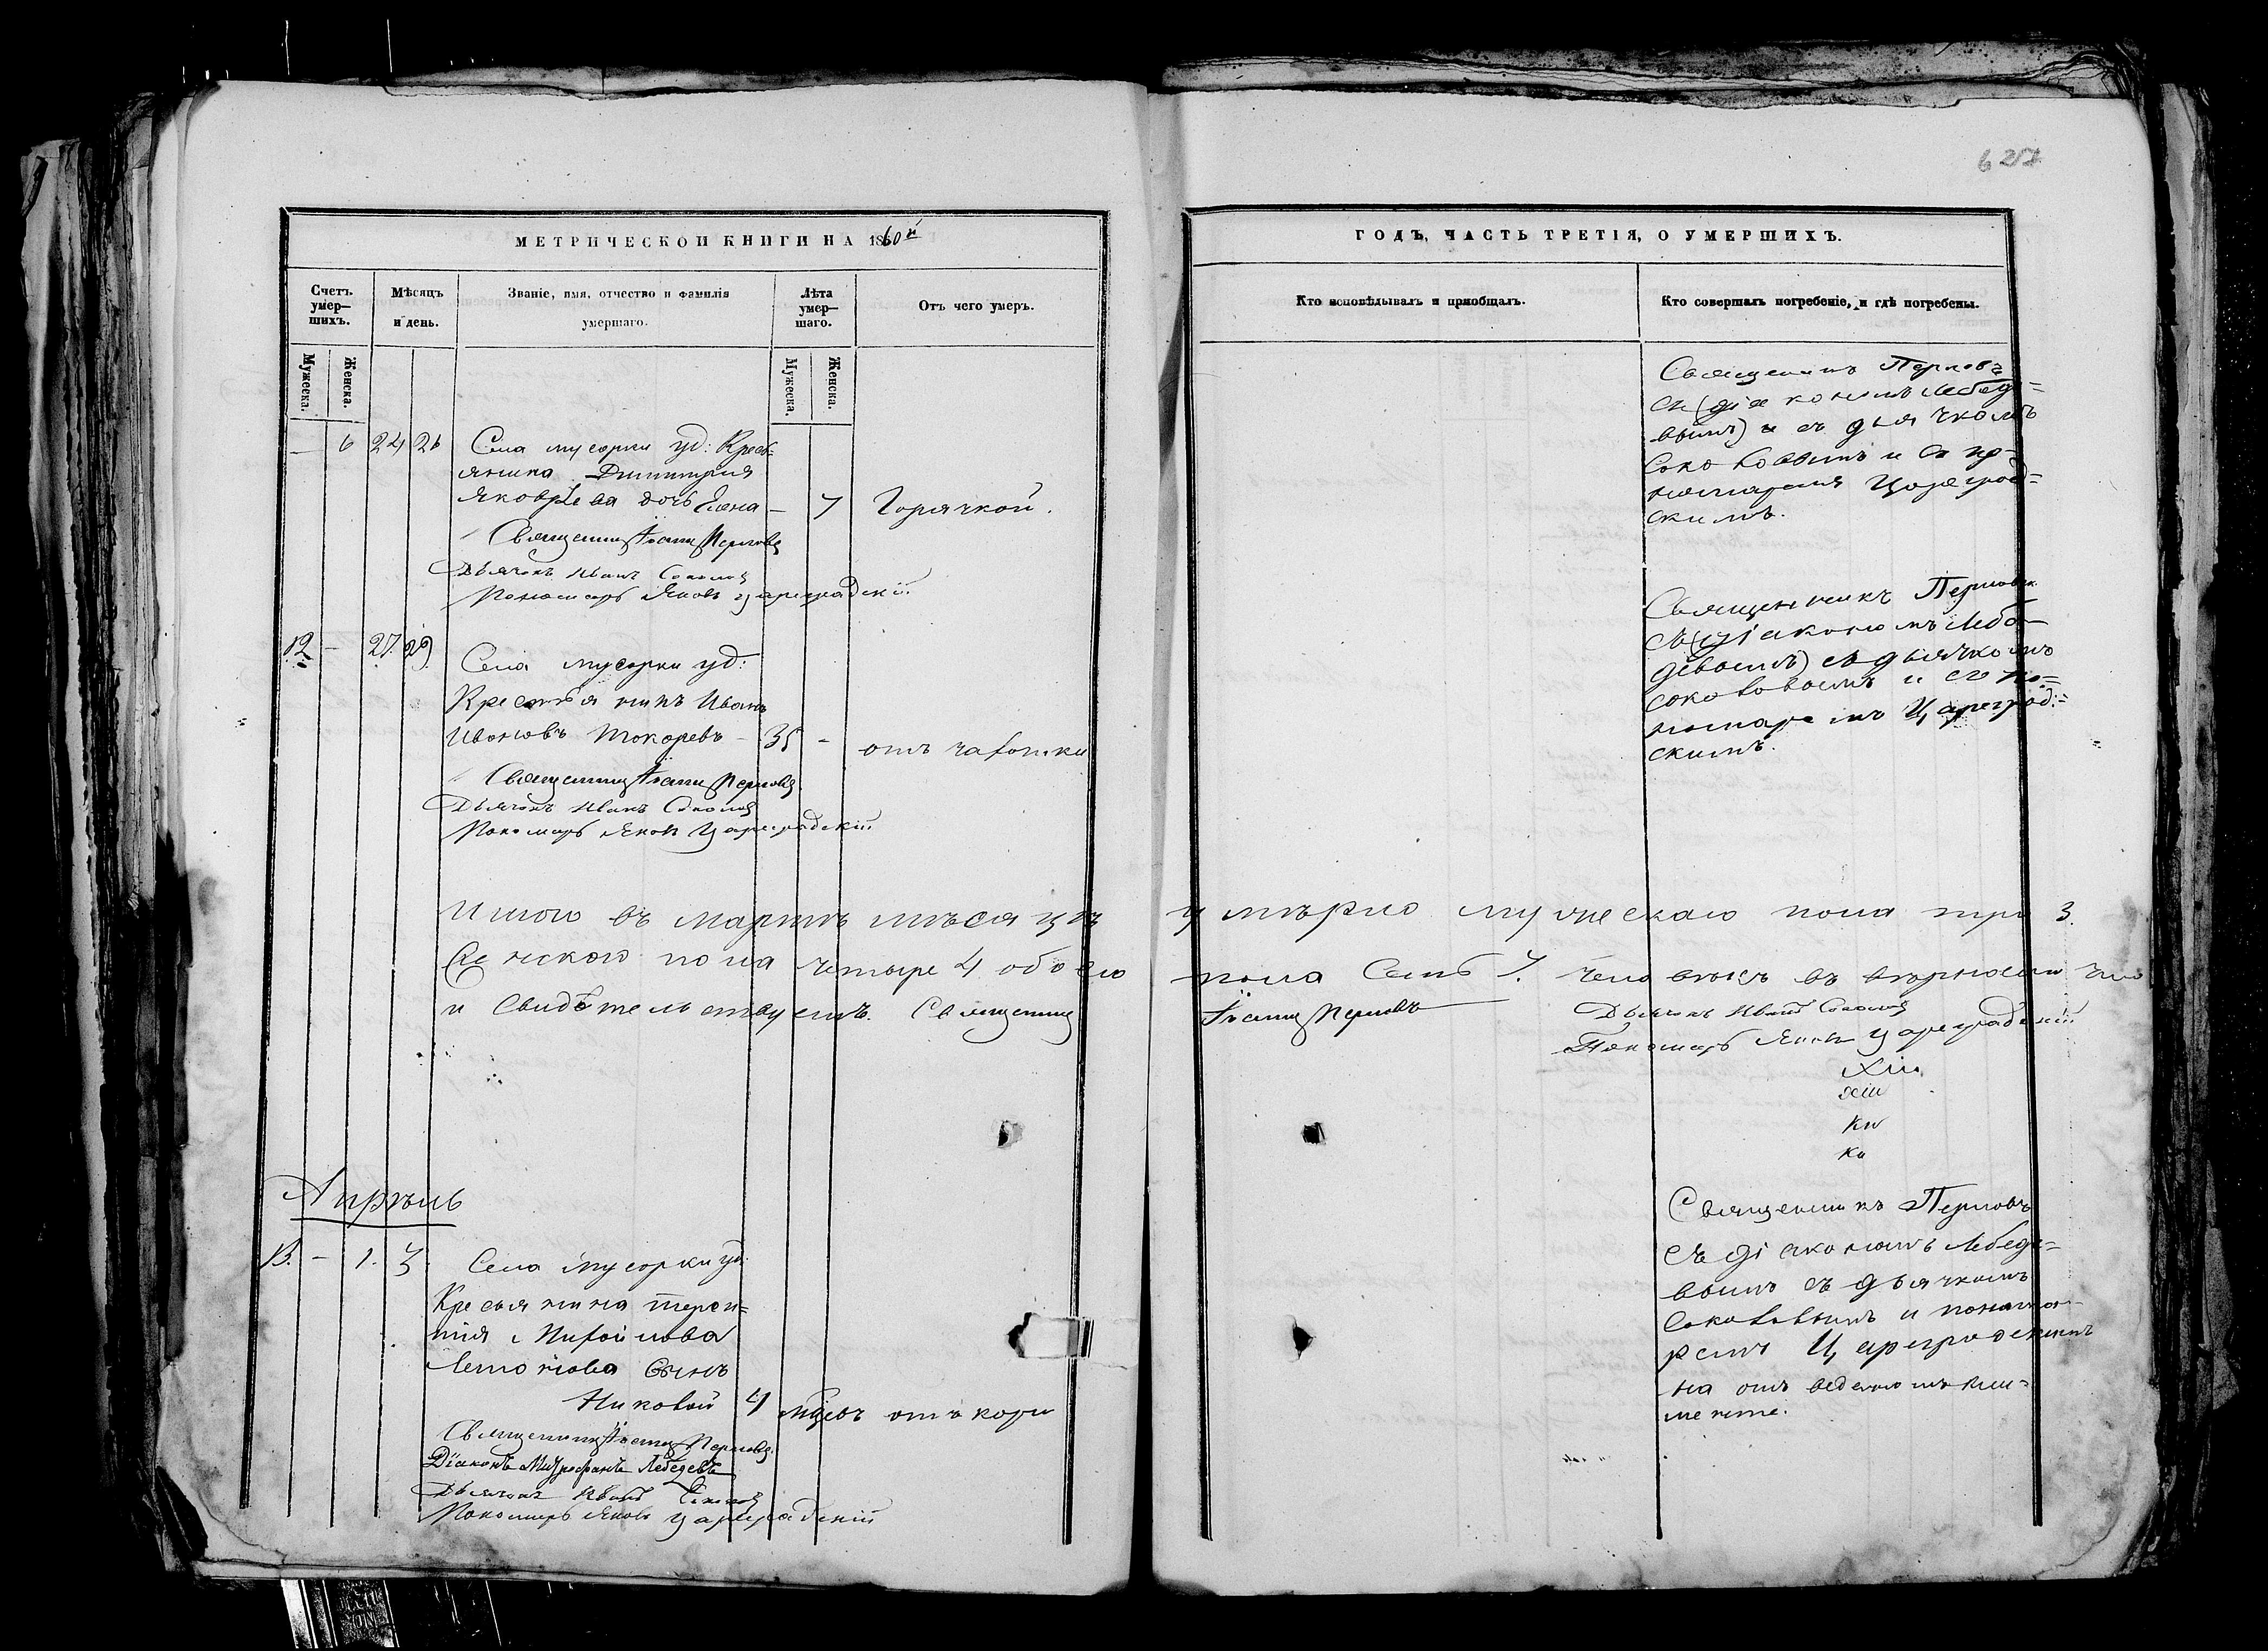 627
МЕТРИЧЕСКОЙ КНИГИ НА 1860й
ГОДЪ, ЧАСТЬ ТРЕТІЯ, О УМЕРШИХЪ.
Счетъ умер—шихъ.
Мужеска.
Женска.
Мѣсяцъ и день.
Званіе, имя, отчество и фамилія умершаго.
Лѣта умер—шаго.
Мужеска.
Женска.
Отъ чего умеръ.
Кто исповѣдывалъ и пріобщалъ.
Кто совершалъ погребеніе, и гдѣ погребены.
— 6 24 26 Села Мусорки уд: Кресть-
янина Димитрія
Яковлева дочь Елена — 7 Горячкой.
Священникъ Іоаннъ Перловъ
Дьячокъ Иванъ Соколовъ
Пономарь Яковъ Цареградскій
Священникъ Перловъ
съ (діакономъ Лебеде=
вымъ) и съ дьячкомъ
Соколовымъ и съ по-
номаремъ Цареград=
скимъ.
12 — 27. 29 Села Мусорки уд:
Крестьянинъ Иванъ
Ивановъ Токоревъ — 35 — отъ чахотки
Священникъ Іоаннъ Перловъ
Дьячокъ Иванъ Соколовъ
Пономарь Яковъ Цареградскій
Священникъ Перловъ
съ (діакономъ Лебе-
девымъ) съ дьячкомъ
Соколовымъ и съ по=
номаремъ Цареград=
скимъ.
Итого въ Мартѣ мѣсяцѣ умѣрло мужескаго пола три 3.
Женскаго пола четыре 4 обоего пола семь 7. человѣкъ въ вѣрности чего
и свидѣтельствуемъ. Священникъ Іоаннъ Перловъ
Дьячокъ Иванъ Соколовъ
Пономарь Яковъ Цареградскій
Апрѣль
13. — 1. 3. Села Мусорки уд.
Кресьянина Терен=
тія Михайлова
сынъ
4 мѣсяц отъ кори
Священникъ Іоаннъ Перловъ.
Діаконъ Митрофанъ Лебедевъ
Дьячокъ Иванъ Соколовъ
Пономарь Яковъ Цареградскій
Священникъ Перловъ
съ діакономъ Лебеде=
вымъ съ дьячкомъ
Соколовымъ и понома-
ремъ Цареградскимъ
на отведенномъ клад=